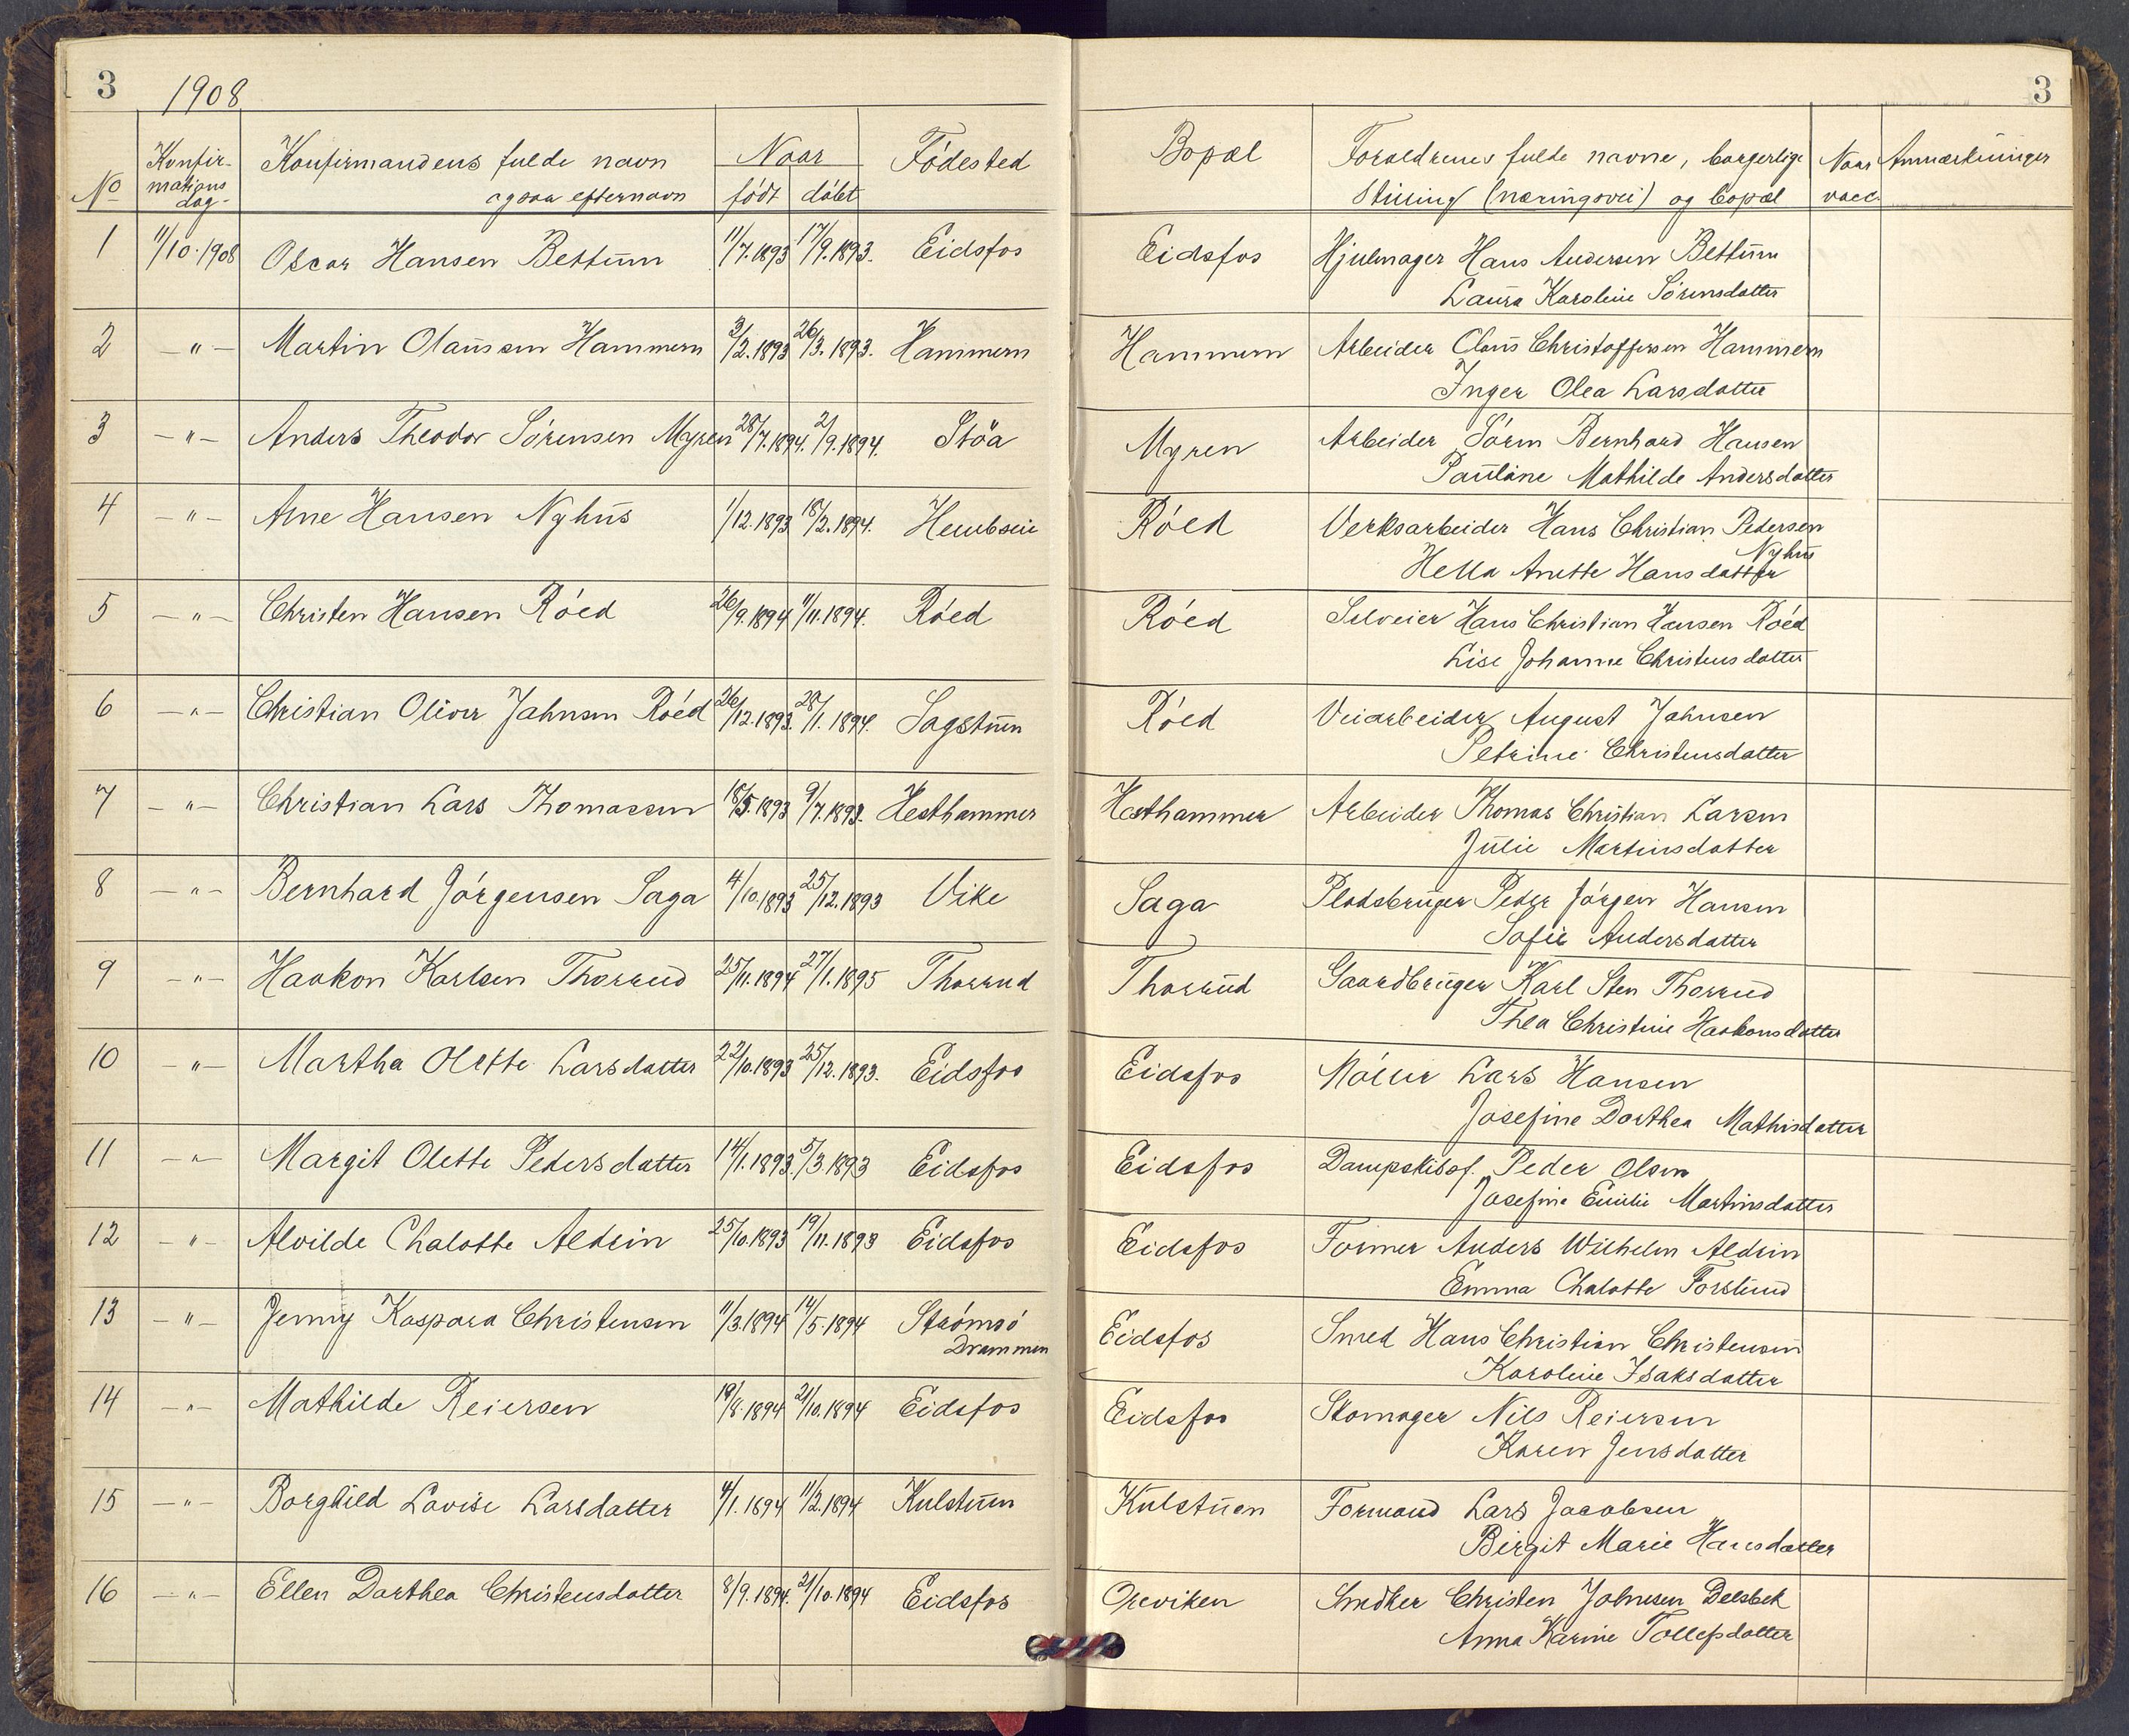 3 1908 3
No Konfirmations dag- Konfirmandens fulde navn ogsaa efternavn Naar født døbt Fødested Bopæl Forældrenes fulde navne, borgerlige Stilling (næringsvei) og bopæl Naar vacc. Anmærkninger
1 11/10.1908 Oscar Hansen Bettum 11/7.1893 17/9.1893. Eidsfos Eidsfos Hjulmager Hans Andersen Bettum
Laura Karoline Sørensdatter
2 -"- Martin Olaussen Hammern 3/2.1893 26/3.1893. Hammern Hammern Arbeider Olaus Christoffersen Hammern
Inger Olea Larsdatter
3 -"- Anders Theodor Sørensen Myren 28/7.1894. 2/9.1894. Støa Myren Arbeider Søren Bernhard Hansen
Pauline Mathilde Andersdatter
4 -"- Arne Hansen Nyhus 1/12.1893 18/2.1894. Røed Verksarbeider Hans Christian Pedersen
Nyhus
Hella Anette Hansdatter
5 -"- Christen Hansen Røed 26/9.1894 11/11.1894. Røed Røed Selveier Hans Christian Hansen Røed
Lise Johanne Christensdatter
6 -"- Christian Oliver Jahnsen Røed 26/12.1893. 28/1.1894. Sagstuen Røed Veiarbeider August Jahnsen
Petrine Christensdatter
7 -"- Christian Lars Thomassen 18/5.1893 9/7.1893. Hesthammer Hesthammer Arbeider Thomas Christian Larsen
Julie Martinsdatter
8 -"- Bernhard Jørgensen Saga 4/10.1893 25/12.1893 Vike Saga Pladsbruger Peder Jørgen Hansen
Sofie Andersdatter
9 -"- Haakon Karlsen Thorrud 25/11.1894 27/1.1895 Thorrud Thorrud Gaardbruger Karl Sten Thorrud
Thea Christine Haakonsdatter
10 -"- Martha Olette Larsdatter 22/10.1893 25/12.1893. Eidsfos Eidsfos Møller Lars Hansen
Josefine Dorthea Mathisdatter
11 -"- Margit Olette Pedersdatter 14/1.1893. 5/3.1893 Eidsfos Eidsfos Dampskibsf. Peder Olsen
Josefine Emilie Martinsdatter
12 -"- Alvilde Chalotte Aldrin 25/10.1893 19/11.1893 Eidsfos Eidsfos Former Anders Wilhelm Aldrin
Emma Chalotte Forslund
13 -"- Jenny Kaspara Christensen 11/3.1894 14/5.1894 Strømsø Eidsfos Smed Hans Christian Christensen
Drammen Karoline Isaksdatter
14 -"- Mathilde Reiersen 19/8.1894 21/10.1894 Eidsfos Eidsfos Skomager Nils Reiersen
Karen Jensdatter
15 -"- Borghild Lovise Larsdatter 4/1.1894 11/2.1894 Kulstuen Kulstuen Formand Lars Jacobsen
Birgit Marie Hansdatter
16 -"- Ellen Dorthea Christensdatter 8/9.1894. 21/10.1894 Eidsfos Oreviken Snedker Christen Johnsen Delsbek
Anna Karine Tollefsdatter